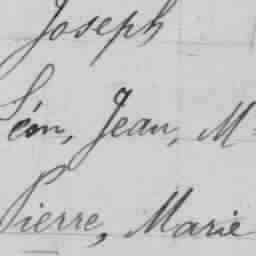 Joseph
Léon, Jean, M
Pierre, Marie